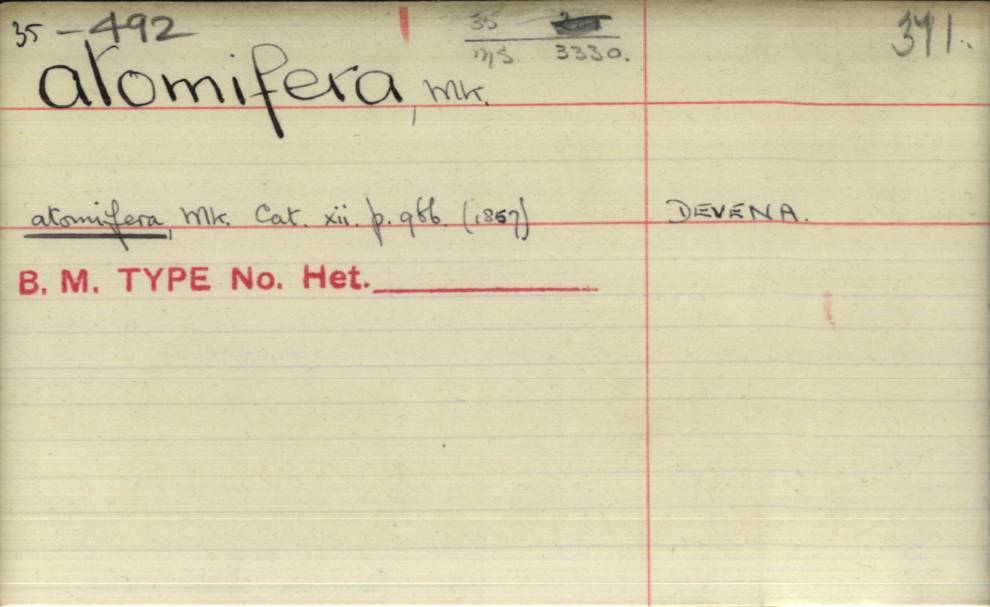 35 - 492
35
m/s. 3330.
391.
atomifera, Mk.
atomifera, Mk. Cat. xii. p. 966. (1857) DEVENA.
B. M. TYPE No. Het.